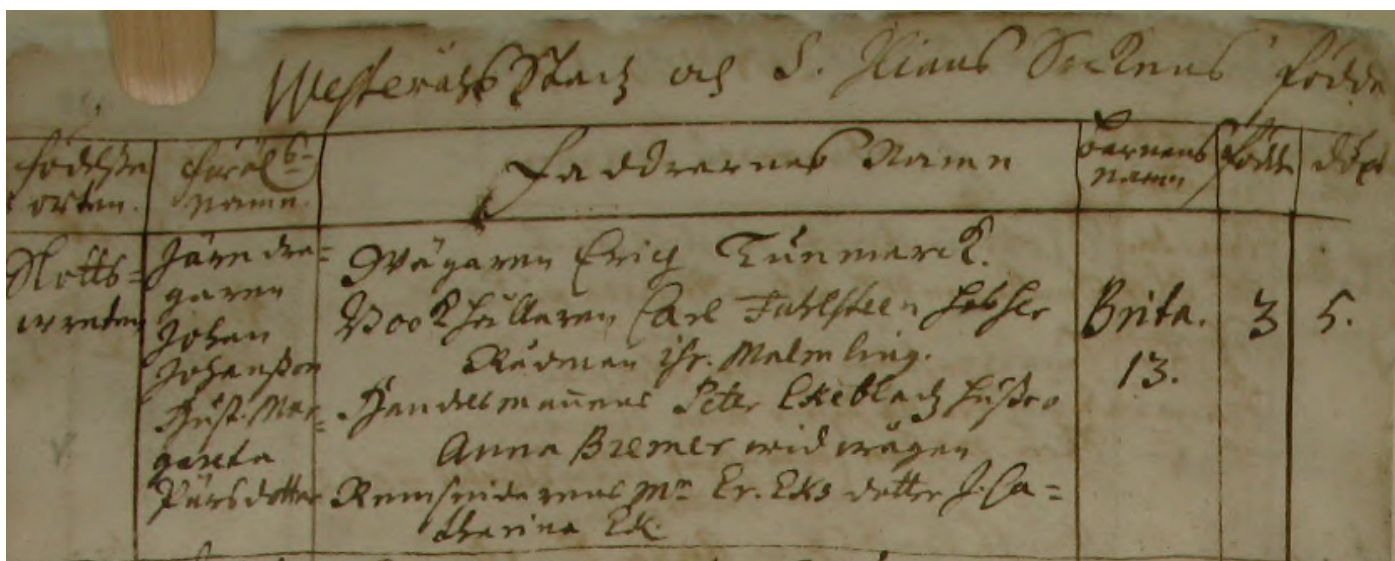 Westeråhs Stadz och S. Ilians Sockens födde
födelse orten.
föräl-
namn.
Faddrernes Namn
barnens namn
födde
döpt
Slotts-
qvreten
Järndra-
garen
Johan
Johanßon
Hust. Mar-
gareta
Pärsdotter
Wägaren Erich Tunmarck.
Bookhållaren Carl Fahlsteen hos her
Rådman Chr. Malmling.
Handelsmannens Peter Ekebladz hustro
Anna Bremer wid wågen
Remsnidarens Mr Er. Eks dotter J. Ca-
tharina Ek.
Brita.
13.
3
5.